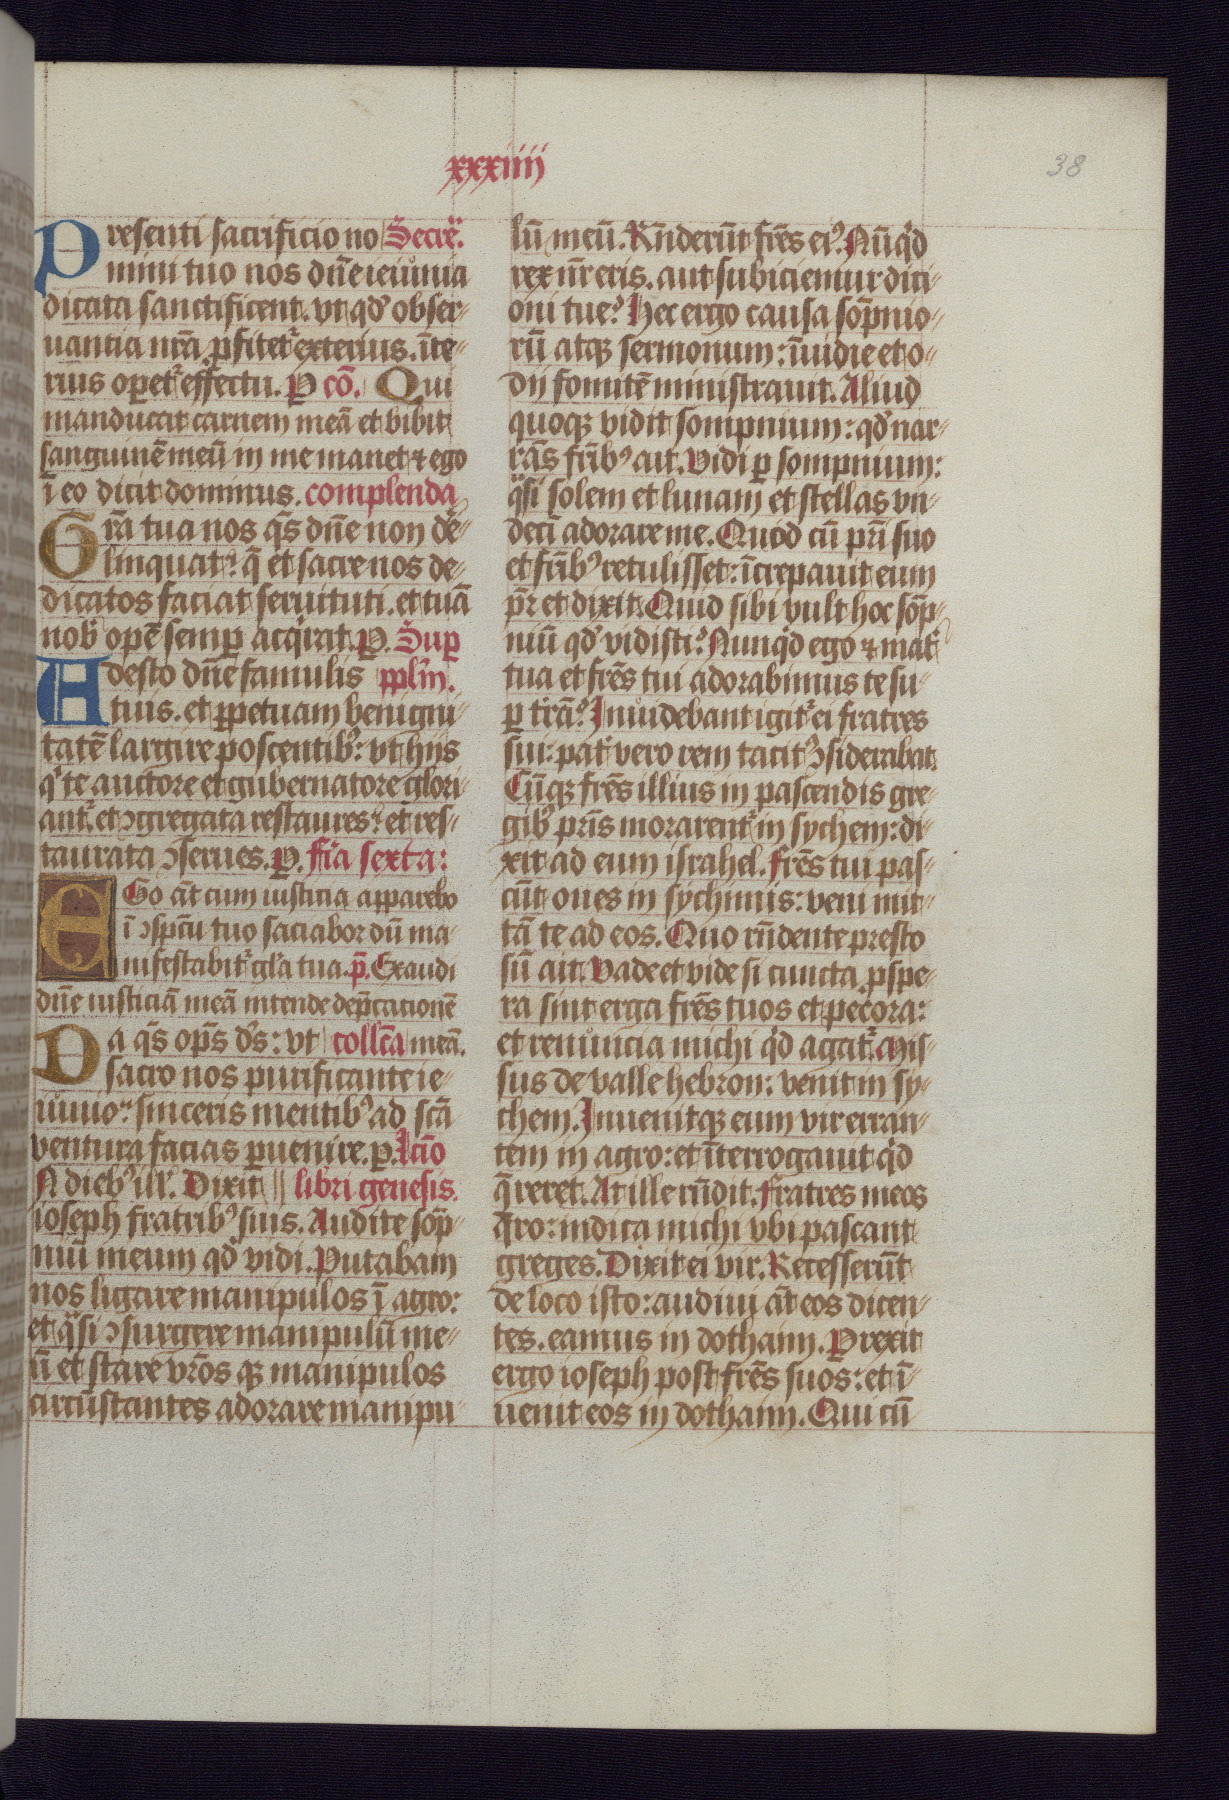 xxxiiii
38
Presenti sacrificio no Secre̅.
mini tuo nos dn̅e ieiunia
dicata sanctificent. vt qd̕ obser-
uantia nr̅a ꝓfitet᷑ exterius. i̅te-
rius opet᷑ effectu. P co̅. Qui
manducat carnem mea̅ et bibit
sanguine̅ meu̅ in me manet ⁊ ego
i̅ eo dicit dominus. complenda
Gr̅a tua nos q̅s dn̅e non de-
linquat: q̅ et sacre nos de-
dicatos faciat seruituti. et tua̅
nob̕ ope̅ semꝑ acq̕rat. P. Suꝑ
Adesto dn̅e famulis ppl̅m.
tuis. et ꝑpetuam benigni-
tate̅ largire poscentibꝰ: vt hijs
q̕ te auctore et gubernatore glori-
ant᷑. et ꝯgregata restaures: et res-
taurata ꝯserues. P. fr̅ia sexta:
Ego a̅t cum iusticia apparebo
i̅ ꝯspc̅u tuo saciabor du̅ ma-
nifestabit᷑ gl̅a tua. p̅. Exaudi
dn̅e iusticia̅ mea̅ intende dep̅catione̅
Da q̅s op̅s ds̅: vt collc̅a mea̅.
sacro nos purificante ie-
iunio: sinceris mentibꝰ ad sc̅a
ventura facias ꝑuenire. p. lcio̅
N diebꝰ ill̕. Dixit libri genesis.
ioseph fratribꝰ suis. Audite so̅p-
niu̅ meum qd̕ vidi. Putabam
nos ligare manipulos i̅ agro:
et q̕si ꝯsurgere manipulu̅ me-
u̅ et stare vr̅os qꝫ manipulos
circu̅stantes adorare manipu-
lu̅ meu̅. Rn̅deru̅t fr̅es eiꝰ. Nu̅q̕d
rex nr̅ eris. aut subiciemur dici-
oni tue? Hec ergo causa so̅pnio-
ru̅ atqꝫ sermonum: i̅uidie et o-
dij fomite̅ ministrauit. Aliud
quoqꝫ vidit sompnium: qd̕ nar-
ra̅s fr̅ibꝰ ait. Vidi ꝑ sompnium:
q̕si solem et lunam et stellas vn-
deci̅ adorare me. Quod cu̅ pr̅i suo
et fr̅ibꝰ retulisset: i̅crepauit eum
pr̅ et dixit. Quid sibi vult hoc so̅p-
niu̅ qd̕ vidisti? Nunq̕d ego ⁊ mat᷑
tua et fr̅es tui adorabimus te su-
ꝑ tr̅a̅? Inuidebant igit᷑ ei fratres
sui: pat᷑ vero rem tacitꝰ ꝯsiderabat.
Cu̅qꝫ fr̅es illius in pascendis gre-
gibꝰ pr̅is morarent᷑ in sychem: di-
xit ad eum israhel. Fr̅es tui pas-
cu̅t oues in sychimis: veni mit-
ta̅ te ad eos. Quo rn̅dente presto
su̅ ait. Vade et vide si cuncta ꝓspe-
ra sint erga fr̅es tuos et pecora:
et renuncia michi q̕d agat᷑. Mis-
sus de valle hebron: venit in sy-
chem. Inuenitqꝫ eum vir erran-
tem in agro: et i̅terrogauit q̕d
q̅reret. At ille rn̅dit. Fratres meos
q̅ro: indica michi vbi pascant
greges. Dixit ei vir. Recesseru̅t
de loco isto: audiui a̅t eos dicen-
tes. eamus in dothaim. Prexit
ergo ioseph post fr̅es suos: et i̅-
uenit eos in dothaim. Qui cu̅